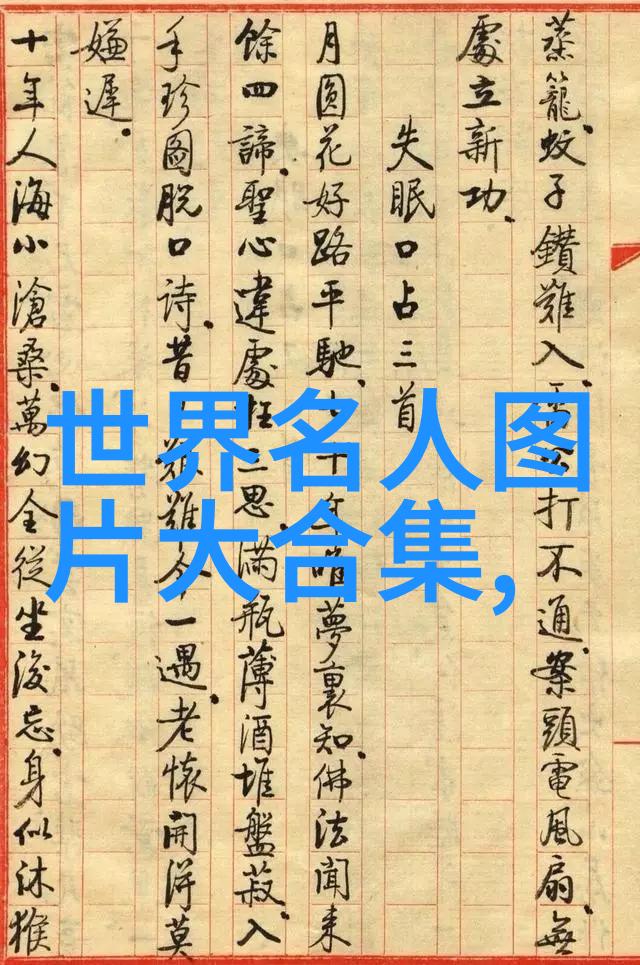 蒸籠。蚊子鑽難入。公打不通。案頭電風扇。無
處立新功。
失眠口占三首
月圓花好路平馳。七十年唯夢裏知。佛法聞來
餘四諦。聖心違處枉三思。滿瓶薄酒堆盤菽。入
手珍圖脫口詩。昔難今一遇。老懷開得莫
嫌遲。
十年人海小滄桑。萬幻全從坐後忘。身似沐猴
世界名人图
片大合集,